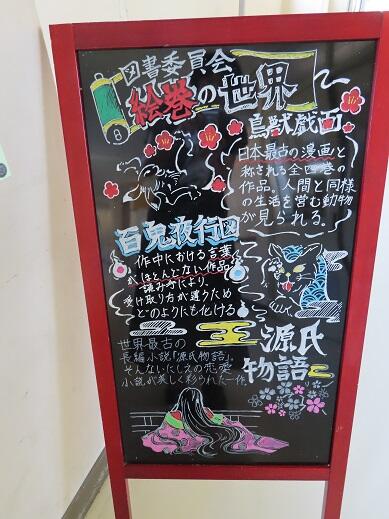 図書委員会
絵巻の世界
鳥獣戯画
日本最古の漫画と
称される全四巻の
作品。人間と同様
の生活を営む動物
が見られる。
百鬼夜行図
作中における言葉
がほとんどない作品。
読み方により、
受け取り方が違うため
どのようにも化ける
源氏
物語
世界最古の
長編小説「源氏物語」。
そんないにしえの恋愛
小説が美しく彩られた一作